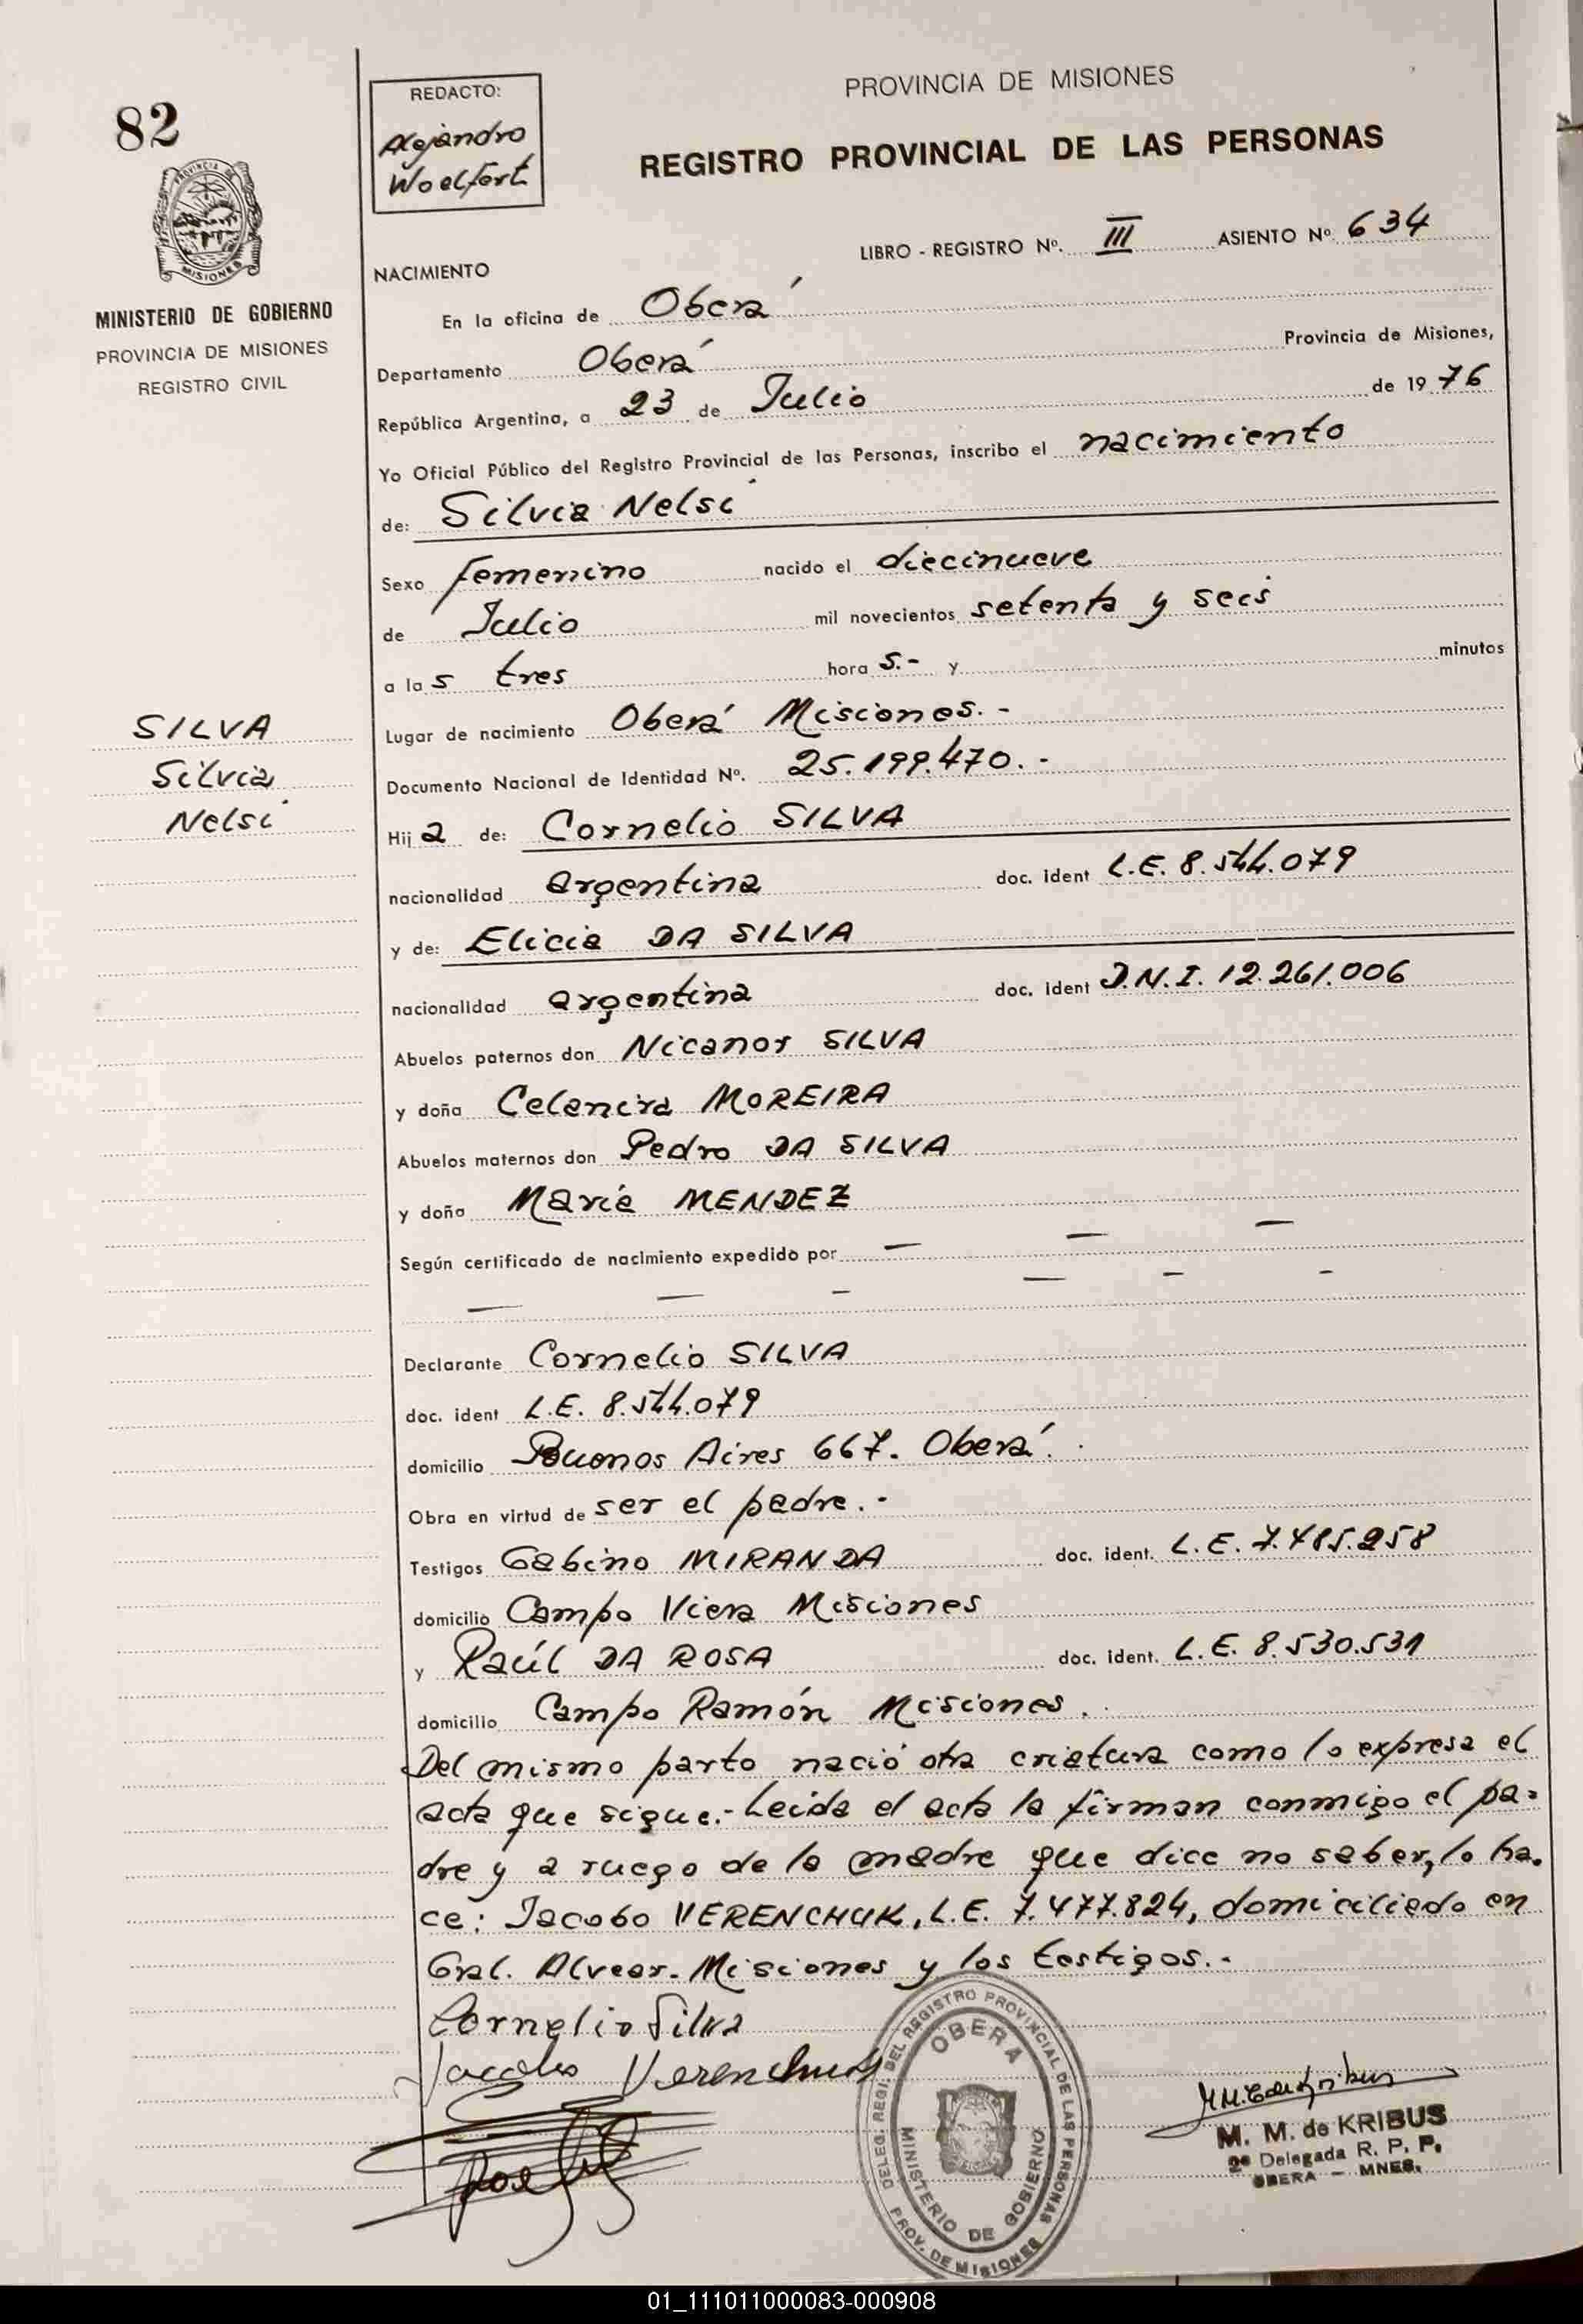 82
PROVINCIA DE
MISIONES
MINISTERIO DE GOBIERNO
PROVINCIA DE MISIONES
REGISTRO CIVIL
SILVA
Silvia
Nelsi
REDACTO:
Alejandro
Woelfert
PROVINCIA DE MISIONES
REGISTRO PROVINCIAL DE LAS PERSONAS
LIBRO - REGISTRO Nº. III ASIENTO Nº 634
NACIMIENTO
En la oficina de Oberá
Departamento Oberá Provincia de Misiones,
República Argentina, a 23 de Julio de 1976
Yo Oficial Público del Registro Provincial de las Personas, inscribo el nacimiento
de: Silvia Nelsi
Sexo femenino nacido el diecinueve
de Julio mil novecientos setenta y seis
a la s tres hora s.- y minutos
Lugar de nacimiento Oberá Misiones.-
Documento Nacional de Identidad Nº. 25.199.470.-
Hij a de: Cornelio SILVA
nacionalidad argentina doc. ident L.E. 8.544.079
y de: Elicia DA SILVA
nacionalidad argentina doc. ident D.N.I. 12.261.006
Abuelos paternos don Nicanor SILVA
y doña Celencira MOREIRA
Abuelos maternos don Pedro DA SILVA
y doña María MENDEZ
Según certificado de nacimiento expedido por — — —
— — — — — —
Declarante Cornelio SILVA
doc. ident L.E. 8.544.079
domicilio Buenos Aires 667. Oberá.
Obra en virtud de ser el padre.-
Testigos Gabino MIRANDA doc. ident. L.E. 7.485.258
domicilio Campo Viera Misiones
y Raúl DA ROSA doc. ident. L.E. 8.530.531
domicilio Campo Ramón Misiones.
Del mismo parto nació otra criatura como lo expresa el
acta que sigue.- Leida el acta la firman conmigo el pa-
dre y a ruego de la madre que dice no saber, lo ha-
ce: Jacobo VERENCHUK, L.E. 7.477.824, domiciliado en
Gral. Alvear. Misiones y los testigos.-
Cornelio Silva
Jacobo Verenchuk
DELEG. REGI. DEL REGISTRO PROVINCIAL DE LAS PERSONAS
OBERA
MINISTERIO DE GOBIERNO
PROV. DE MISIONES
M. M. de KRIBUS
2ª Delegada R. P. P.
OBERA - MNES.
01_111011000083-000908